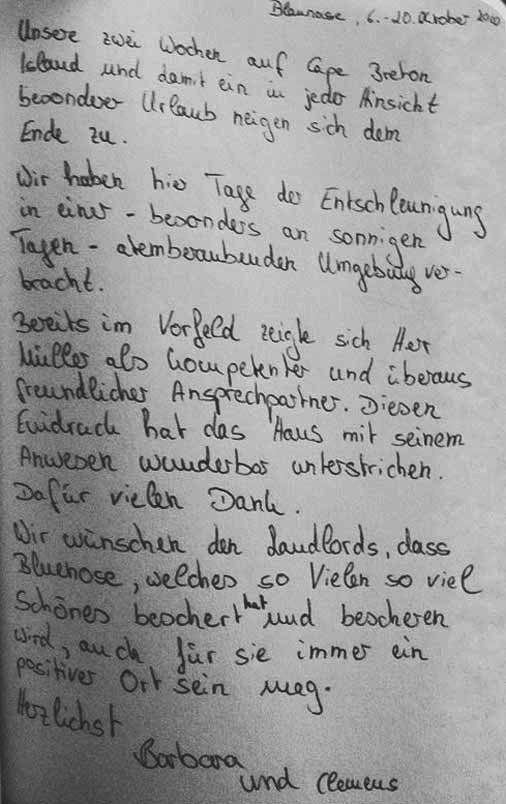 Blaunase, 6.-20. Oktober 2010
Unsere zwei Wochen auf Cape Breton
Island und damit ein in jeder Hinsicht
besonderer Urlaub neigen sich dem
Ende zu.
Wir haben hier Tage der Entschleunigung
in einer - besonders an sonnigen
Tagen - atemberaubenden Umgebung ver-
bracht.
Bereits im Vorfeld zeigte sich Herr
Müller als kompetenter und überaus
freundlicher Ansprechpartner. Diesen
Eindruck hat das Haus mit seinem
Anwesen wunderbar unterstrichen.
Dafür vielen Dank.
Wir wünschen den Landlords, dass
Bluenose, welches so Vielen so viel
Schönes beschert hat und bescheren
wird, auch für sie immer ein
positiver Ort sein mag.
Herzlichst
Barbara
und Clemens